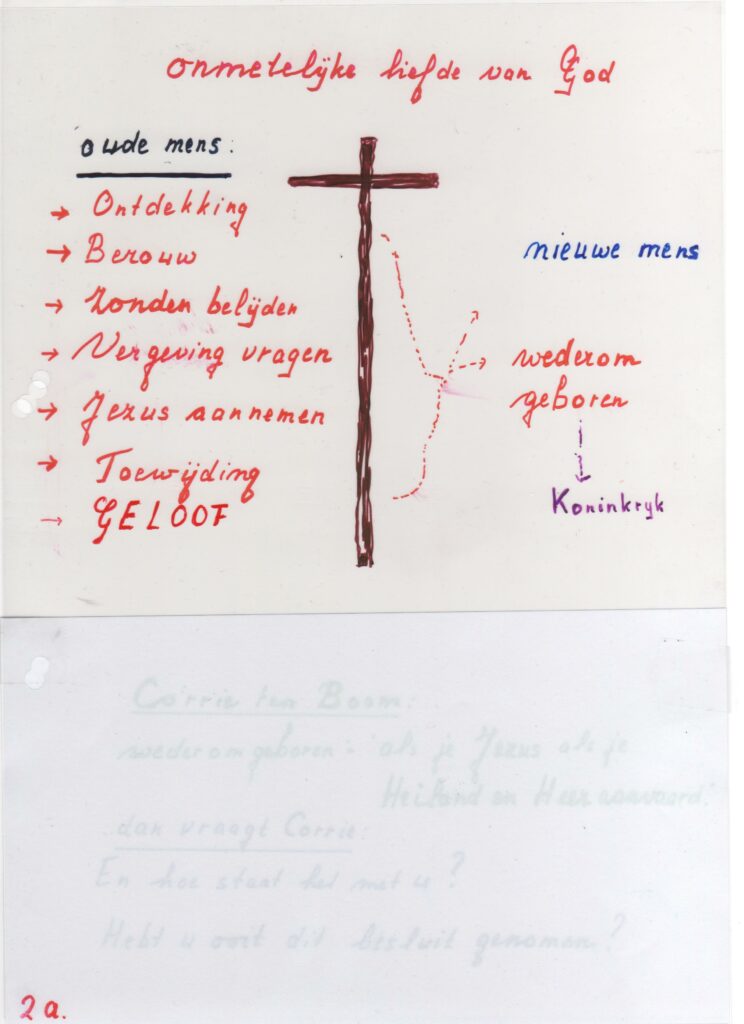 onmetelijke liefde van God
oude mens:
→ Ontdekking
→ Berouw
→ Zonden belijden
→ Vergeving vragen
→ Jezus aannemen
→ Toewijding
→ GELOOF
nieuwe mens
wederom
geboren
Koninkryk
Corrie ten Boom:
wederomgeboren = als je Jezus als je
Heiland en Heer aanvaard.
dan vraagt Corrie:
En hoe staat het met u?
Hebt u ooit dit besluit genomen?
2a.